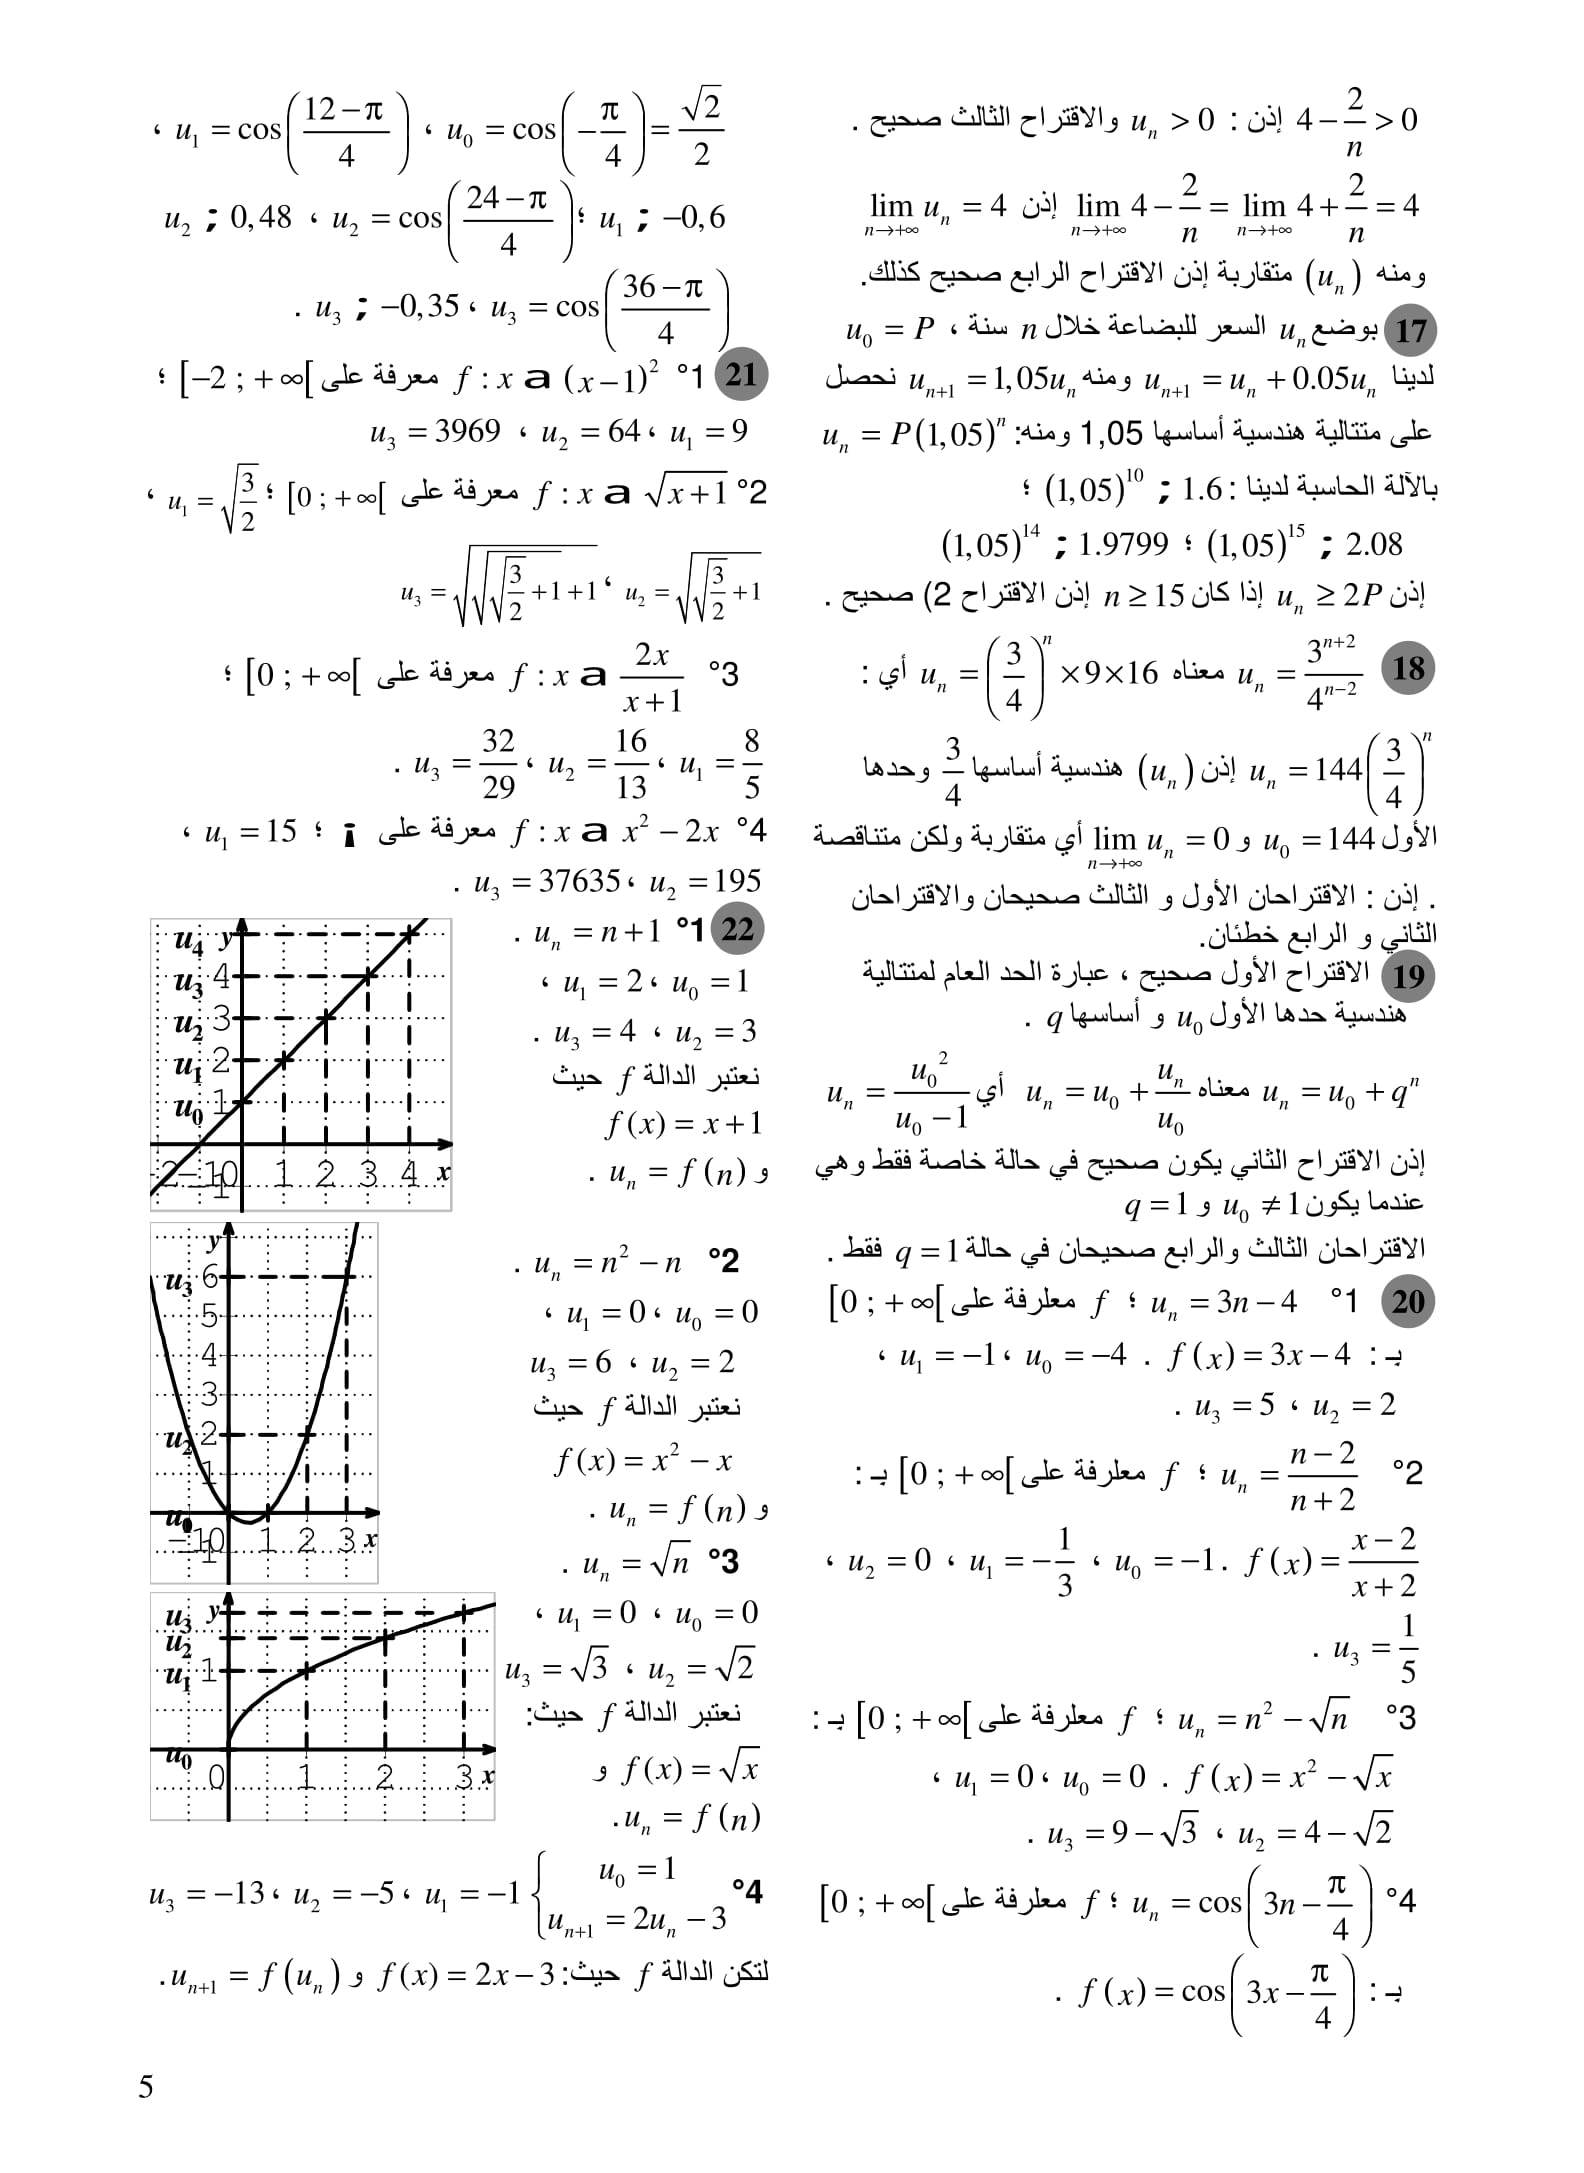 4 − 2/n > 0 إذن : u_n > 0 والاقتراح الثالث صحيح .
lim_{n→+∞} 4 − 2/n = lim_{n→+∞} 4 + 2/n = 4 إذن lim_{n→+∞} u_n = 4
ومنه (u_n) متقاربة إذن الاقتراح الرابع صحيح كذلك.
17 بوضع u_n السعر للبضاعة خلال n سنة ، u_0 = P
لدينا u_{n+1} = u_n + 0.05u_n ومنه u_{n+1} = 1,05u_n نحصل
على متتالية هندسية أساسها 1,05 ومنه: u_n = P(1,05)^n
بالآلة الحاسبة لدينا : (1,05)^10 ; 1.6 ؛
(1,05)^14 ; 1.9799 ؛ (1,05)^15 ; 2.08
إذن u_n ≥ 2P إذا كان n ≥ 15 إذن الاقتراح 2) صحيح .
18 u_n = 3^{n+2}/4^{n−2} معناه u_n = (3/4)^n × 9 × 16 أي :
u_n = 144(3/4)^n إذن (u_n) هندسية أساسها 3/4 وحدها
الأول u_0 = 144 و lim_{n→+∞} u_n = 0 أي متقاربة ولكن متناقصة
. إذن : الاقتراحان الأول و الثالث صحيحان والاقتراحان
الثاني و الرابع خطئان.
19 الاقتراح الأول صحيح ، عبارة الحد العام لمتتالية
هندسية حدها الأول u_0 و أساسها q .
u_n = u_0 + q^n معناه u_n = u_0 + u_n/u_0 أي u_n = u_0^2/(u_0 − 1)
إذن الاقتراح الثاني يكون صحيح في حالة خاصة فقط وهي
عندما يكون u_0 ≠ 1 و q = 1
الاقتراحان الثالث والرابع صحيحان في حالة q = 1 فقط .
20 1° u_n = 3n − 4 ؛ f معلرفة على [0 ; +∞[
بـ : f(x) = 3x − 4 . u_0 = −4 ، u_1 = −1 ،
u_2 = 2 ، u_3 = 5 .
2° u_n = (n − 2)/(n + 2) ؛ f معلرفة على [0 ; +∞[ بـ :
f(x) = (x − 2)/(x + 2) . u_0 = −1 ، u_1 = −1/3 ، u_2 = 0 ،
u_3 = 1/5 .
3° u_n = n^2 − √n ؛ f معلرفة على [0 ; +∞[ بـ :
f(x) = x^2 − √x . u_0 = 0 ، u_1 = 0 ،
u_2 = 4 − √2 ، u_3 = 9 − √3 .
4° u_n = cos(3n − π/4) ؛ f معلرفة على [0 ; +∞[
بـ : f(x) = cos(3x − π/4) .
u_0 = cos(−π/4) = √2/2 ، u_1 = cos((12 − π)/4) ،
u_1 ; −0,6 ؛ u_2 = cos((24 − π)/4) ، u_2 ; 0,48
u_3 = cos((36 − π)/4) ، u_3 ; −0,35 .
21 1° f : x a (x − 1)^2 معرفة على [−2 ; +∞[ ؛
u_1 = 9 ، u_2 = 64 ، u_3 = 3969
2° f : x a √(x + 1) معرفة على [0 ; +∞[ ؛ u_1 = √(3/2) ،
u_2 = √(√(3/2) + 1) ، u_3 = √(√(√(3/2) + 1) + 1)
3° f : x a 2x/(x + 1) معرفة على [0 ; +∞[ ؛
u_1 = 8/5 ، u_2 = 16/13 ، u_3 = 32/29 .
4° f : x a x^2 − 2x معرفة على ¡ ؛ u_1 = 15 ،
u_2 = 195 ، u_3 = 37635 .
22 1° u_n = n + 1 .
u_0 = 1 ، u_1 = 2 ،
u_2 = 3 ، u_3 = 4 .
نعتبر الدالة f حيث
f(x) = x + 1
و u_n = f(n) .
u_4 y
u_3 4
u_2 3
u_1 2
u_0 1
-2 -1 0 1 2 3 4 x
-1
2° u_n = n^2 − n .
u_0 = 0 ، u_1 = 0 ،
u_2 = 2 ، u_3 = 6
نعتبر الدالة f حيث
f(x) = x^2 − x
و u_n = f(n) .
y
u_3 6
5
4
3
u_2 2
1
u_0
-1 0 1 2 3 x
-1
3° u_n = √n .
u_0 = 0 ، u_1 = 0 ،
u_2 = √2 ، u_3 = √3
نعتبر الدالة f حيث:
f(x) = √x و
u_n = f(n).
u_3 y
u_2
u_1 1
u_0
0 1 2 3 x
4° { u_0 = 1 ; u_{n+1} = 2u_n − 3 u_1 = −1 ، u_2 = −5 ، u_3 = −13
لتكن الدالة f حيث: f(x) = 2x − 3 و u_{n+1} = f(u_n).
5